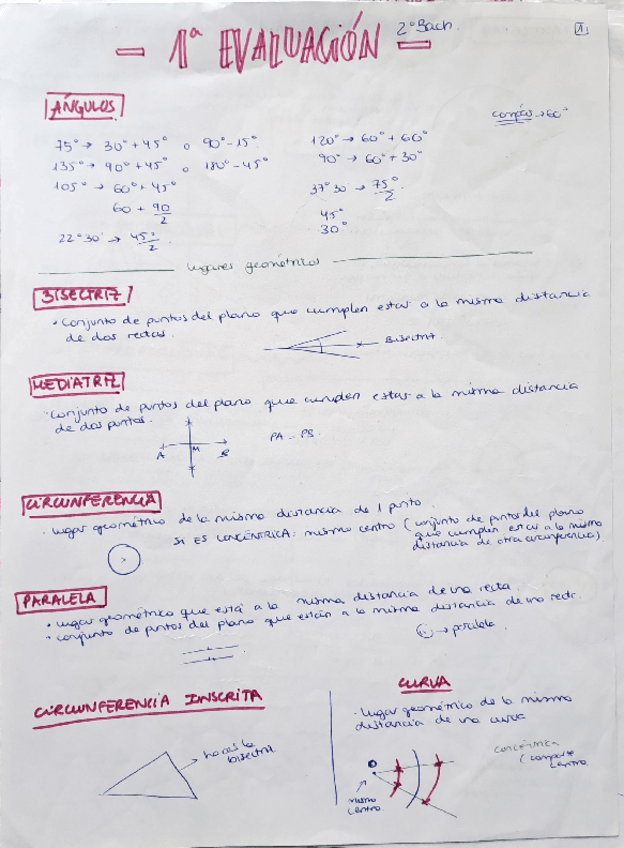 - 1ª EVALUACIÓN -
2º Bach.
1
ÁNGULOS
compás → 60°
75° → 30° + 45° o 90° - 15°
135° → 90° + 45° o 180° - 45°
105° → 60° + 45°
60 + 90/2
22°30' → 45°/2
120° → 60° + 60°
90° → 60° + 30°
37°30 → 75°/2
45°
30°
lugares geométricos
BISECTRIZ
• Conjunto de puntos del plano que cumplen estar a la misma distancia
de dos rectas.
Bisectriz
MEDIATRIZ
· Conjunto de puntos del plano que cumplen estar a la misma distancia
de dos puntos.
A M B
CIRCUNFERENCIA
· lugar geométrico de la misma distancia de 1 punto
SI ES CONCÉNTRICA: mismo centro (conjunto de puntos del plano
que cumplen estar a la misma
distancia de otra circunferencia)
PARALELA
• lugar geométrico que está a la misma distancia de una recta.
• conjunto de puntos del plano que están a la misma distancia de una recta.
→ paralela
CIRCUNFERENCIA INSCRITA
haces la
bisectriz
CURVA
· lugar geométrico de la misma
distancia de una curva
mismo
centro
concéntrica
(comparte
centro